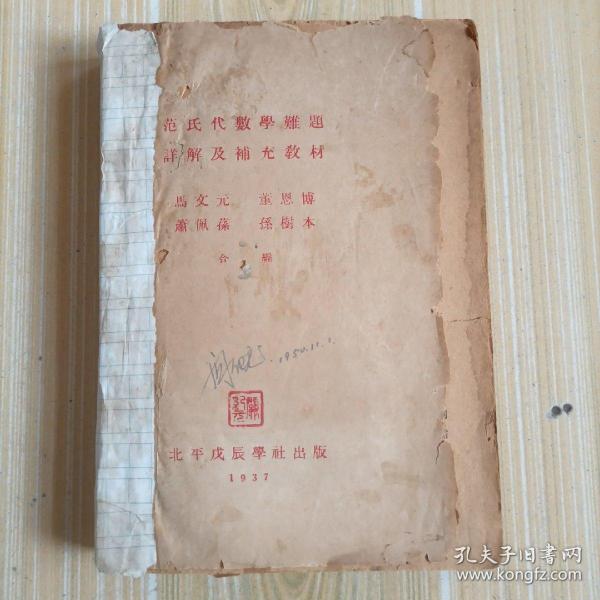 范氏代數學難題
詳解及補充教材
馬文元 董恩博
蕭佩葆 孫樹本
合編
1950.11.1.
北平戊辰學社出版
1937
孔夫子旧书网
www.kongfz.com